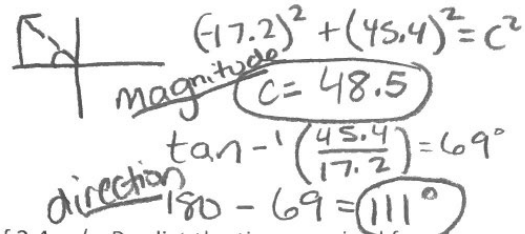 (-17.2)² + (45.4)² = c²
magnitude c = 48.5
tan-¹(45.4/17.2) = 69°
direction 180 - 69 = 111°